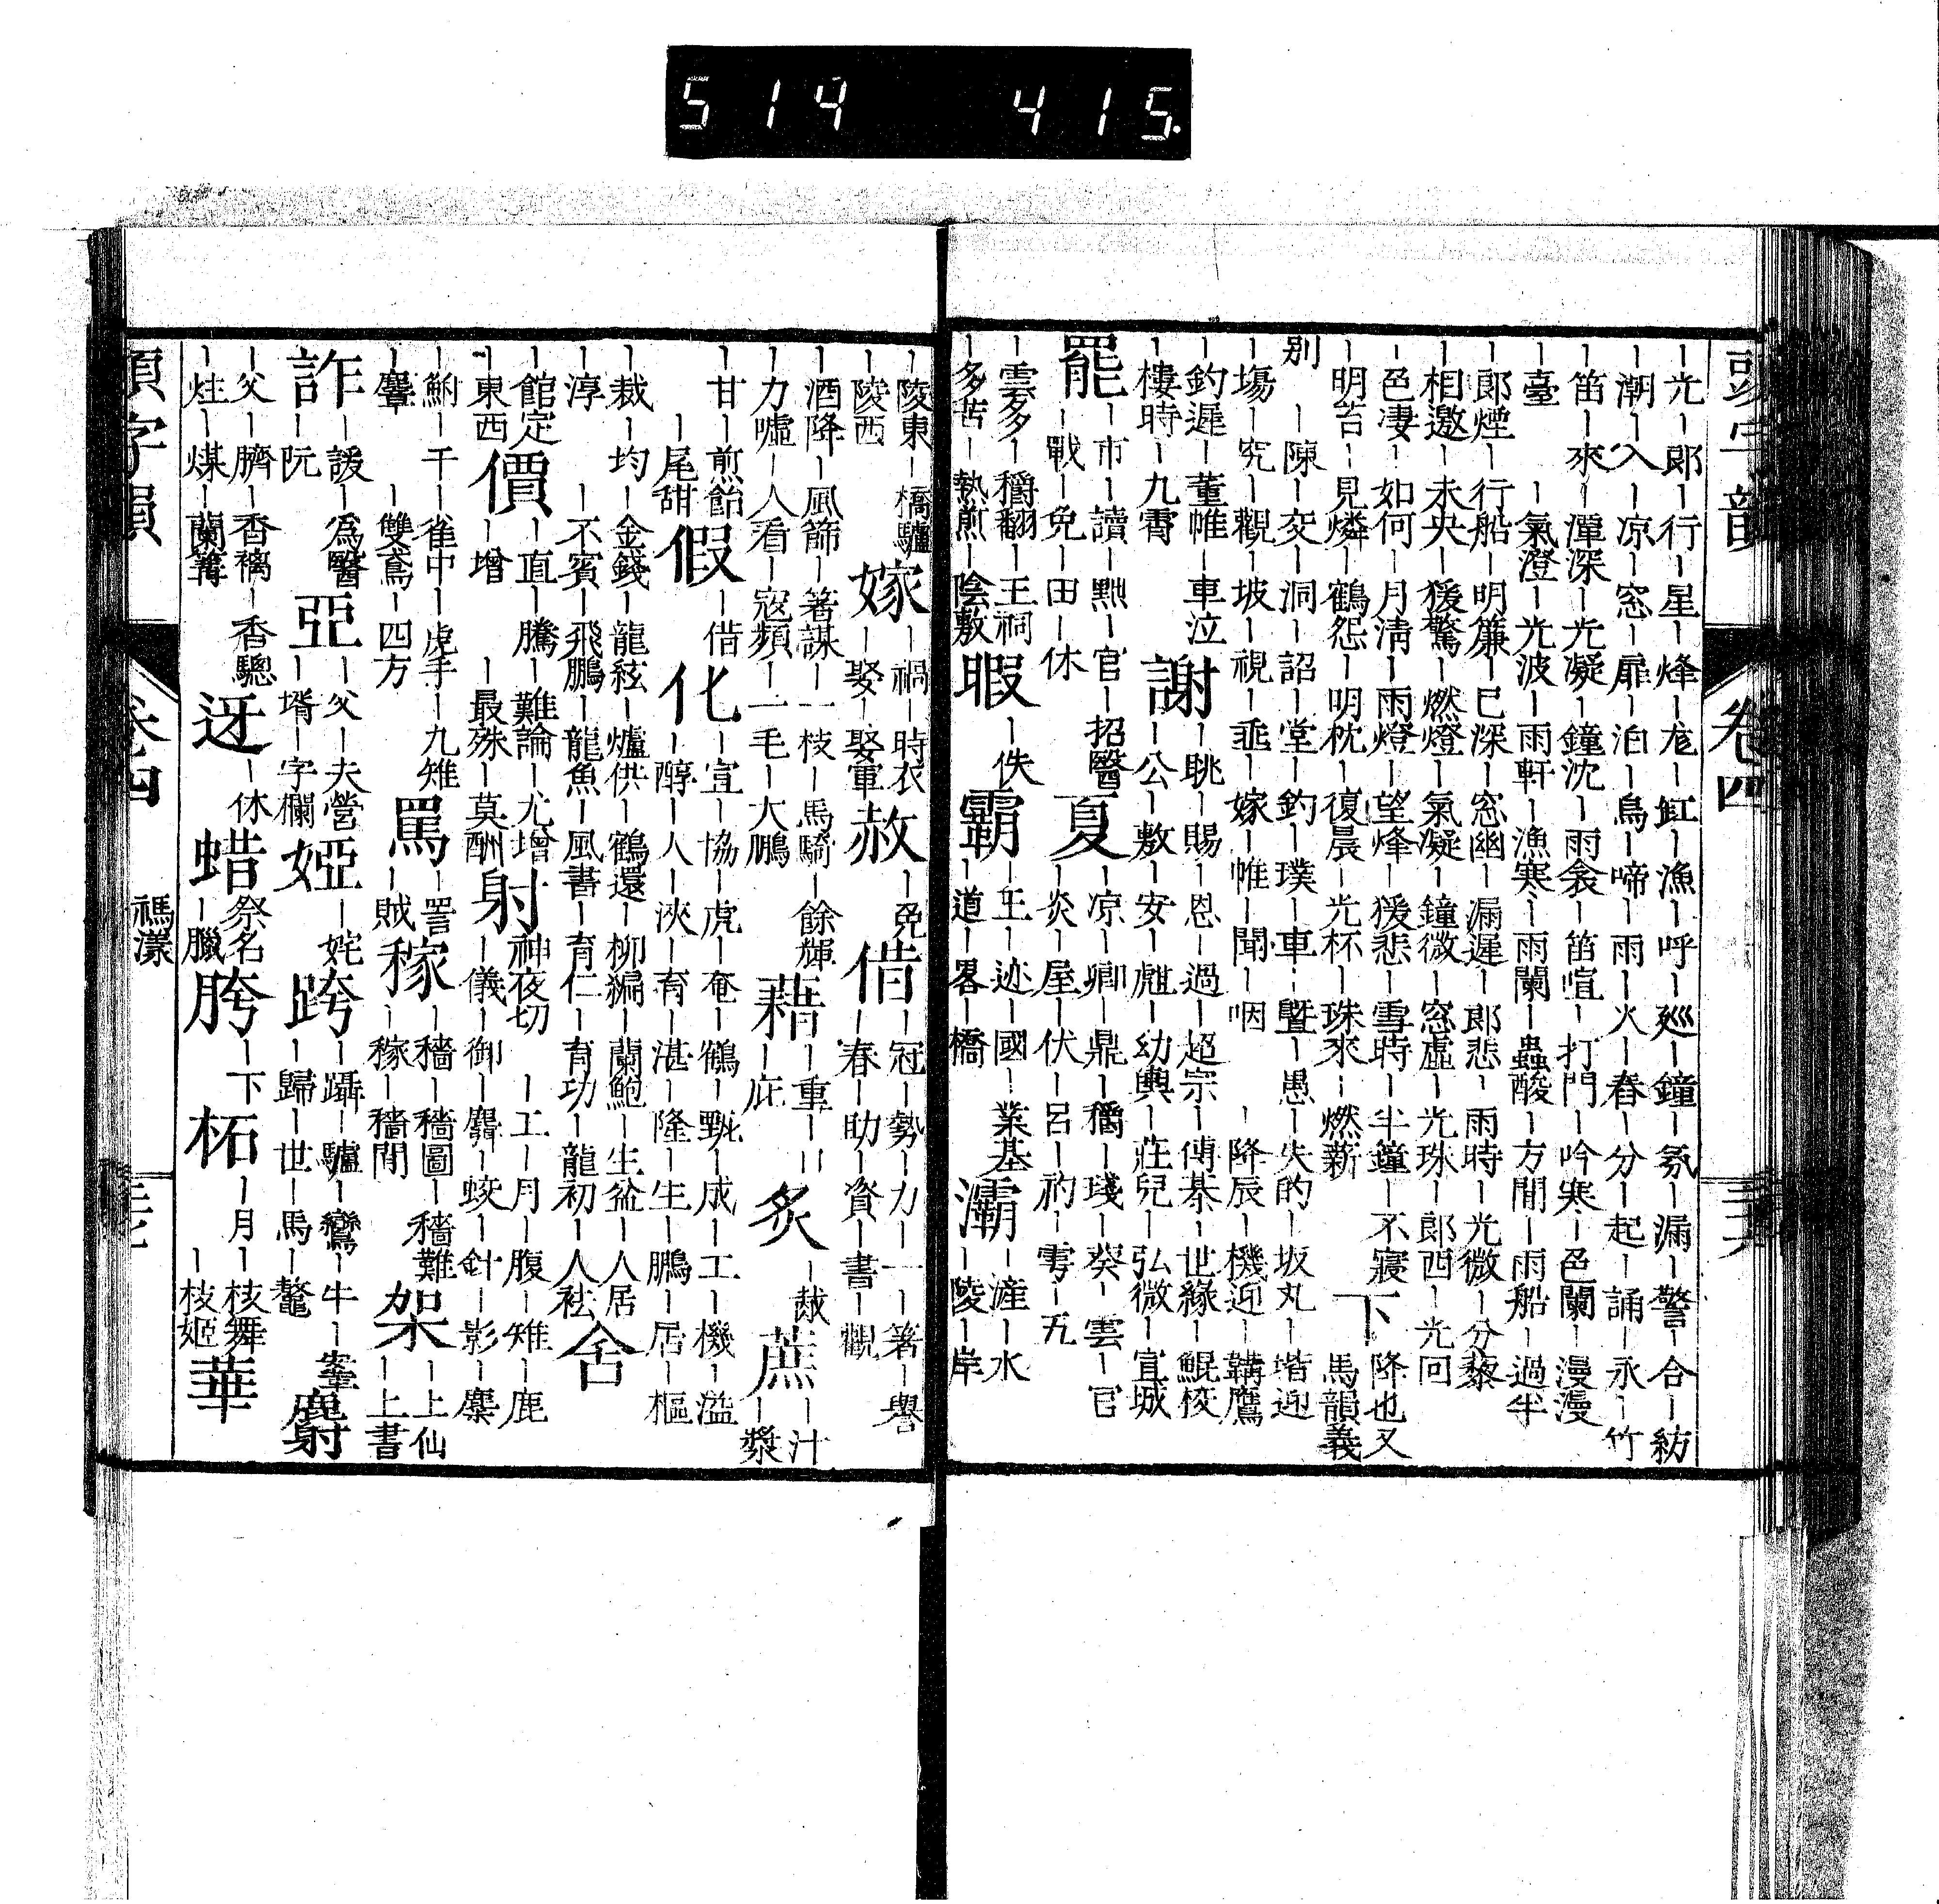 514 415.
頭字韻 卷四
丨光丨郞丨行丨星丨烽丨尨丨缸丨漁丨呼丨廵丨鐘丨氛丨漏丨警丨合丨紡
丨潮丨入丨凉丨窓丨扉丨泊丨鳥丨啼丨雨丨火丨春丨分丨起丨誦丨永丨竹
丨笛丨來丨潭深丨光凝丨鐘沈丨雨衾丨笛喧丨打門丨吟寒丨色闌丨漫漫
丨臺丨氣澄丨光波丨雨軒丨漁寒丨雨闌丨蟲酸丨方閒丨雨船丨過半
丨郎煙丨行船丨明簾丨已深丨窓幽丨漏遲丨郎悲丨雨時丨光微丨分藜
丨相邀丨未央丨猨驚丨燃燈丨氣凝丨鐘微丨窓虛丨光珠丨郎西丨光回
丨邑凄丨如何丨月淸丨雨燈丨望烽丨猨悲丨雪時丨半鐘丨不寢 下 降也又
丨明苔丨見燐丨鶴怨丨明枕丨復晨丨光杯丨珠來丨燃薪 馬韻義
別 丨陳丨交丨洞丨詔丨堂丨釣丨璞丨車丨曁丨愚丨失的丨坂丸丨堦迎
丨塲丨究丨觀丨坡丨視丨乖丨嫁丨帷丨聞丨咽丨降辰丨機迎丨鞲鷹
丨釣遲丨董帷丨車泣 謝 丨眺丨賜丨恩丨過丨超宗丨傳棊丨世緣丨鯤校
丨樓時丨九霄 丨公丨敷丨安丨彪丨幼輿丨莊兒丨弘微丨宣城
罷 丨市丨讀丨黜丨官丨招醫 夏 丨凉丨卿丨鼎丨穪丨琖丨葵丨雲丨官
丨戰丨免丨田丨休 丨炎丨屋丨伏丨呂丨礿丨雩丨五
丨雲多丨穪翻丨王祠 暇 丨佚 霸 丨王丨迹丨國丨業基 灞 丨滻丨水
丨多苦丨熱煎丨陰敷 丨道丨畧丨橋 丨陵丨岸
丨陵東丨橋驢 嫁 丨禍丨時衣 赦 丨免 借 丨冠丨勢丨力丨一丨箸丨譽
丨陵西 丨娶丨娶軍 丨春丨助丨資丨書丨觀
丨酒降丨風篩丨箸謀丨一枝丨馬騎丨餘輝 藉 丨重丨丨 炙 丨胾 蔗 丨汁
丨力噓丨人看丨寇頻丨一毛丨大鵬 丨庇 丨漿
丨甘丨煎飴 假 丨借 化 丨宣丨協丨虎丨奄丨鶴丨甄丨成丨工丨機丨溢
丨尾甜 丨醇丨人丨浹丨育丨湛丨隆丨生丨鵬丨居丨樞
丨裁丨均丨金錢丨龍絃丨爐供丨鶴還丨柳編丨蘭鮑丨生盆丨人居 舍
丨淳丨不賓丨飛鵬丨龍魚丨風書丨育仁丨育功丨龍初丨人袪
丨館定 價 丨直丨騰丨難論丨尤增 射 神夜切丨工丨月丨腹丨雉丨鹿
丨東西 丨增丨最殊丨莫酬 丨儀丨御丨麝丨蛟丨針丨影丨麋
丨鮒丨千丨雀中丨虎手丨九雉 罵 丨詈 稼 丨穡丨穡圖丨穡難 架 丨上仙
丨麞丨雙鳶丨四方 丨賊 丨稼丨穡閒 丨上書
詐 丨諼丨爲醫 亞 丨父丨夫營 婭 丨姹 跨 丨躡丨驢丨鸞丨牛丨鞌 麝
丨阮 丨壻丨字欄 丨歸丨世丨馬丨鼇
丨父丨臍丨香褵丨香驄 迓 丨休 蜡 祭名 胯 丨下 柘 丨月丨枝舞 華
丨炷丨煤丨蘭篝 丨臘 丨枝姬
頭字韻 卷四 禡漾